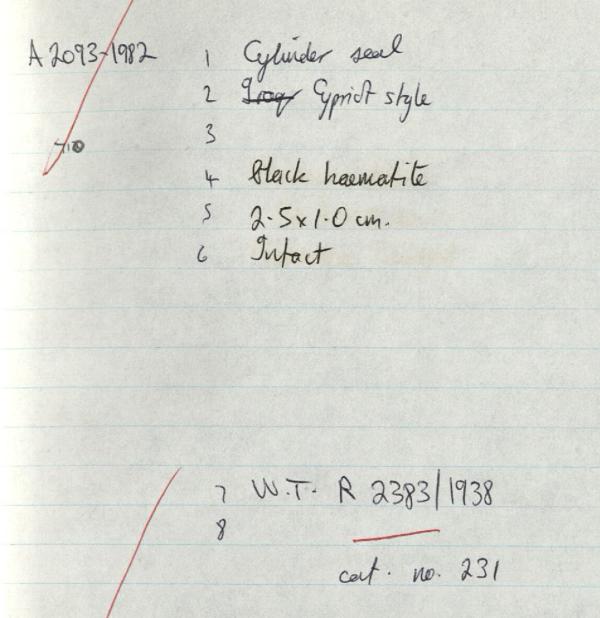 A 2093-1982 1 Cylinder seal
2 Iraq Cypriot style
3
4 Black haematite
5 2.5x1.0 cm.
6 Intact
7 W.T. R 2383/1938
8
cat. no. 231